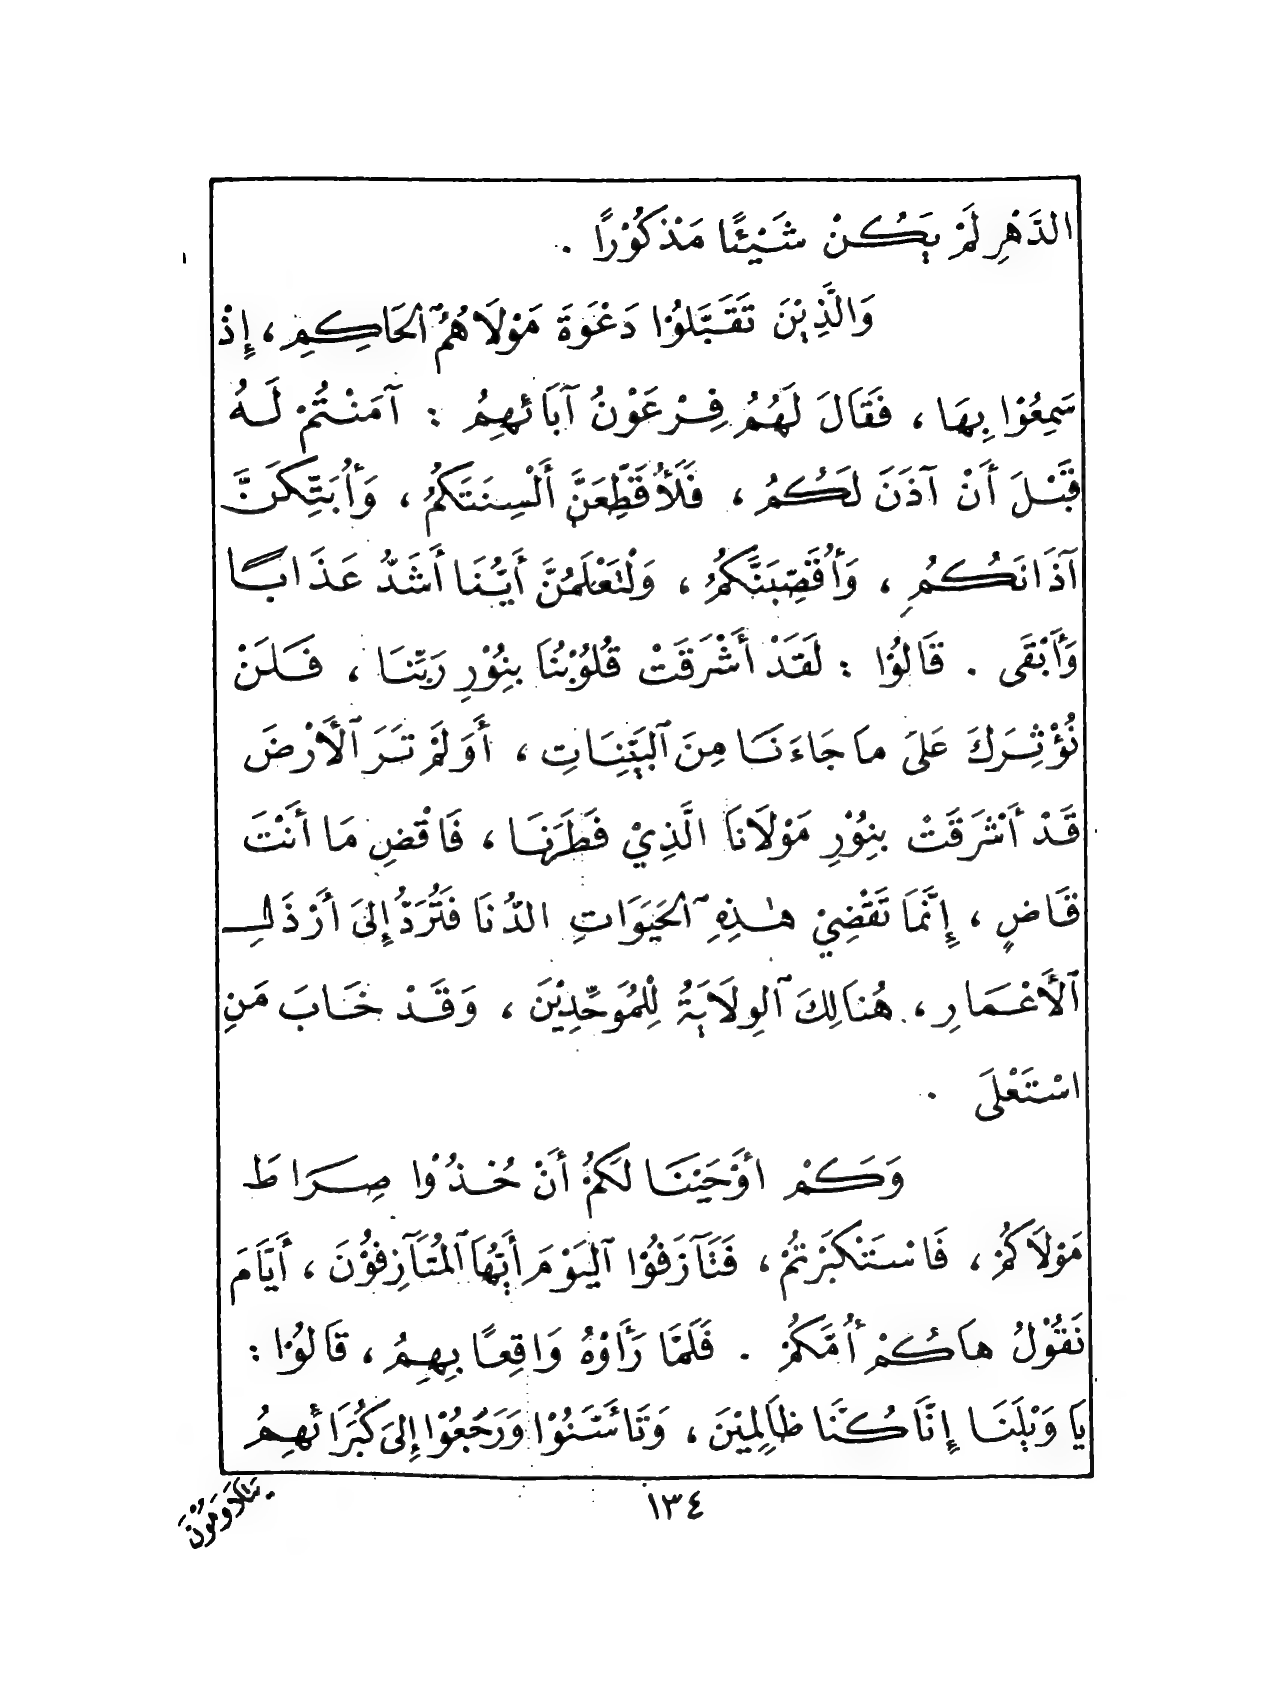 الدَّهْرِ لَمْ يَكُنْ شَيْئًا مَذْكُوْرًا .
وَالَّذِيْنَ تَقَبَّلُوْا دَعْوَةَ مَوْلَاهُمُ ٱلحَاكِمِ ، إِذْ
سَمِعُوْا بِهَا ، فَقَالَ لَهُمُ فِرْعَوْنُ آبَائِهِمُ : آمَنْتُمْ لَهُ
قَبْلَ أَنْ آذَنَ لَكُمُ ، فَلَأُقَطِّعَنَّ أَلْسِنَتَكُمُ ، وَأُبَتِّكَنَّ
آذَانَكُمُ ، وَأُقَصِّبَنَّكُمُ ، وَلْتَعْلَمُنَّ أَيُّنَا أَشَدُّ عَذَابًا
وَأَبْقَى . قَالُوْا : لَقَدْ أَشْرَقَتْ قُلُوْبُنَا بِنُوْرِ رَبِّنَا ، فَلَنْ
نُؤْثِرَكَ عَلَى مَا جَاءَنَا مِنَ ٱلبَيِّنَاتِ ، أَوَلَمْ تَرَ ٱلأَرْضَ
قَدْ أَشْرَقَتْ بِنُوْرِ مَوْلَانَا الَّذِيْ فَطَرَنَا ، فَاقْضِ مَا أَنْتَ
قَاضٍ ، إِنَّمَا تَقْضِيْ هٰذِهِ ٱلحَيَوَاتِ الدُّنَا فَتُرَدُّ إِلَى أَرْذَلِ
ٱلأَعْمَارِ ، هُنَالِكَ ٱلوِلَايَةُ لِلْمُوَحِّدِيْنَ ، وَقَدْ خَابَ مَنِ
اسْتَعْلَى .
وَكَمْ أَوْحَيْنَا لَكُمُ أَنْ خُذُوْا صِرَاطَ
مَوْلَاكُمْ ، فَاسْتَكْبَرْتُمْ ، فَتَآزَفُوْا ٱليَوْمَ أَيُّهَا ٱلمُتَآزِفُوْنَ ، أَيَّامَ
نَقُوْلُ هَاكُمْ أُمَّكُمْ . فَلَمَّا رَأَوْهُ وَاقِعًا بِهِمُ ، قَالُوْا :
يَا وَيْلَنَا إِنَّا كُنَّا ظَالِمِيْنَ ، وَتَائَسَّنُوْا وَرَجَعُوْا إِلَى كُبَرَائِهِمُ
١٣٤
يَتَلَاوَمُوْنَ